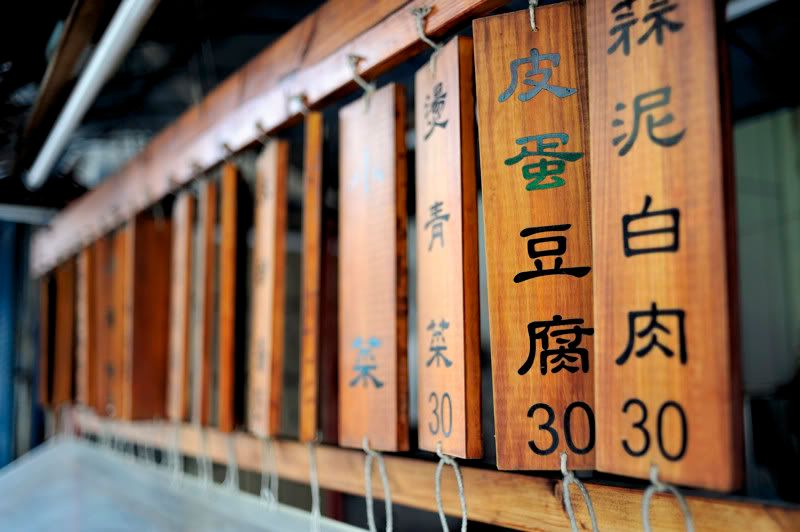 蒜泥白肉30
皮蛋豆腐30
燙青菜30
小菜